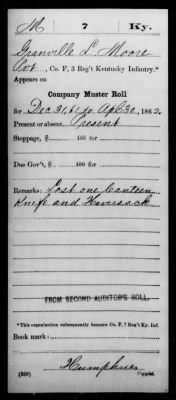 M 7 Ky.
Granville L. Moore
Pvt, Co. F, 3 Reg't Kentucky Infantry.*
Appears on
Company Muster Roll
for Dec 31, 61 to Apl 30, 1862.
Present or absent, Present
Stoppage, $ 100 for
Due Gov't, $ 100 for
Remarks: Lost one Canteen
Knife and Haversack
FROM SECOND AUDITOR'S ROLL.
*This organization subsequently became Co. F, 7 Reg't Ky. Inf.
Book mark:
Humphries
(358) Copyist.